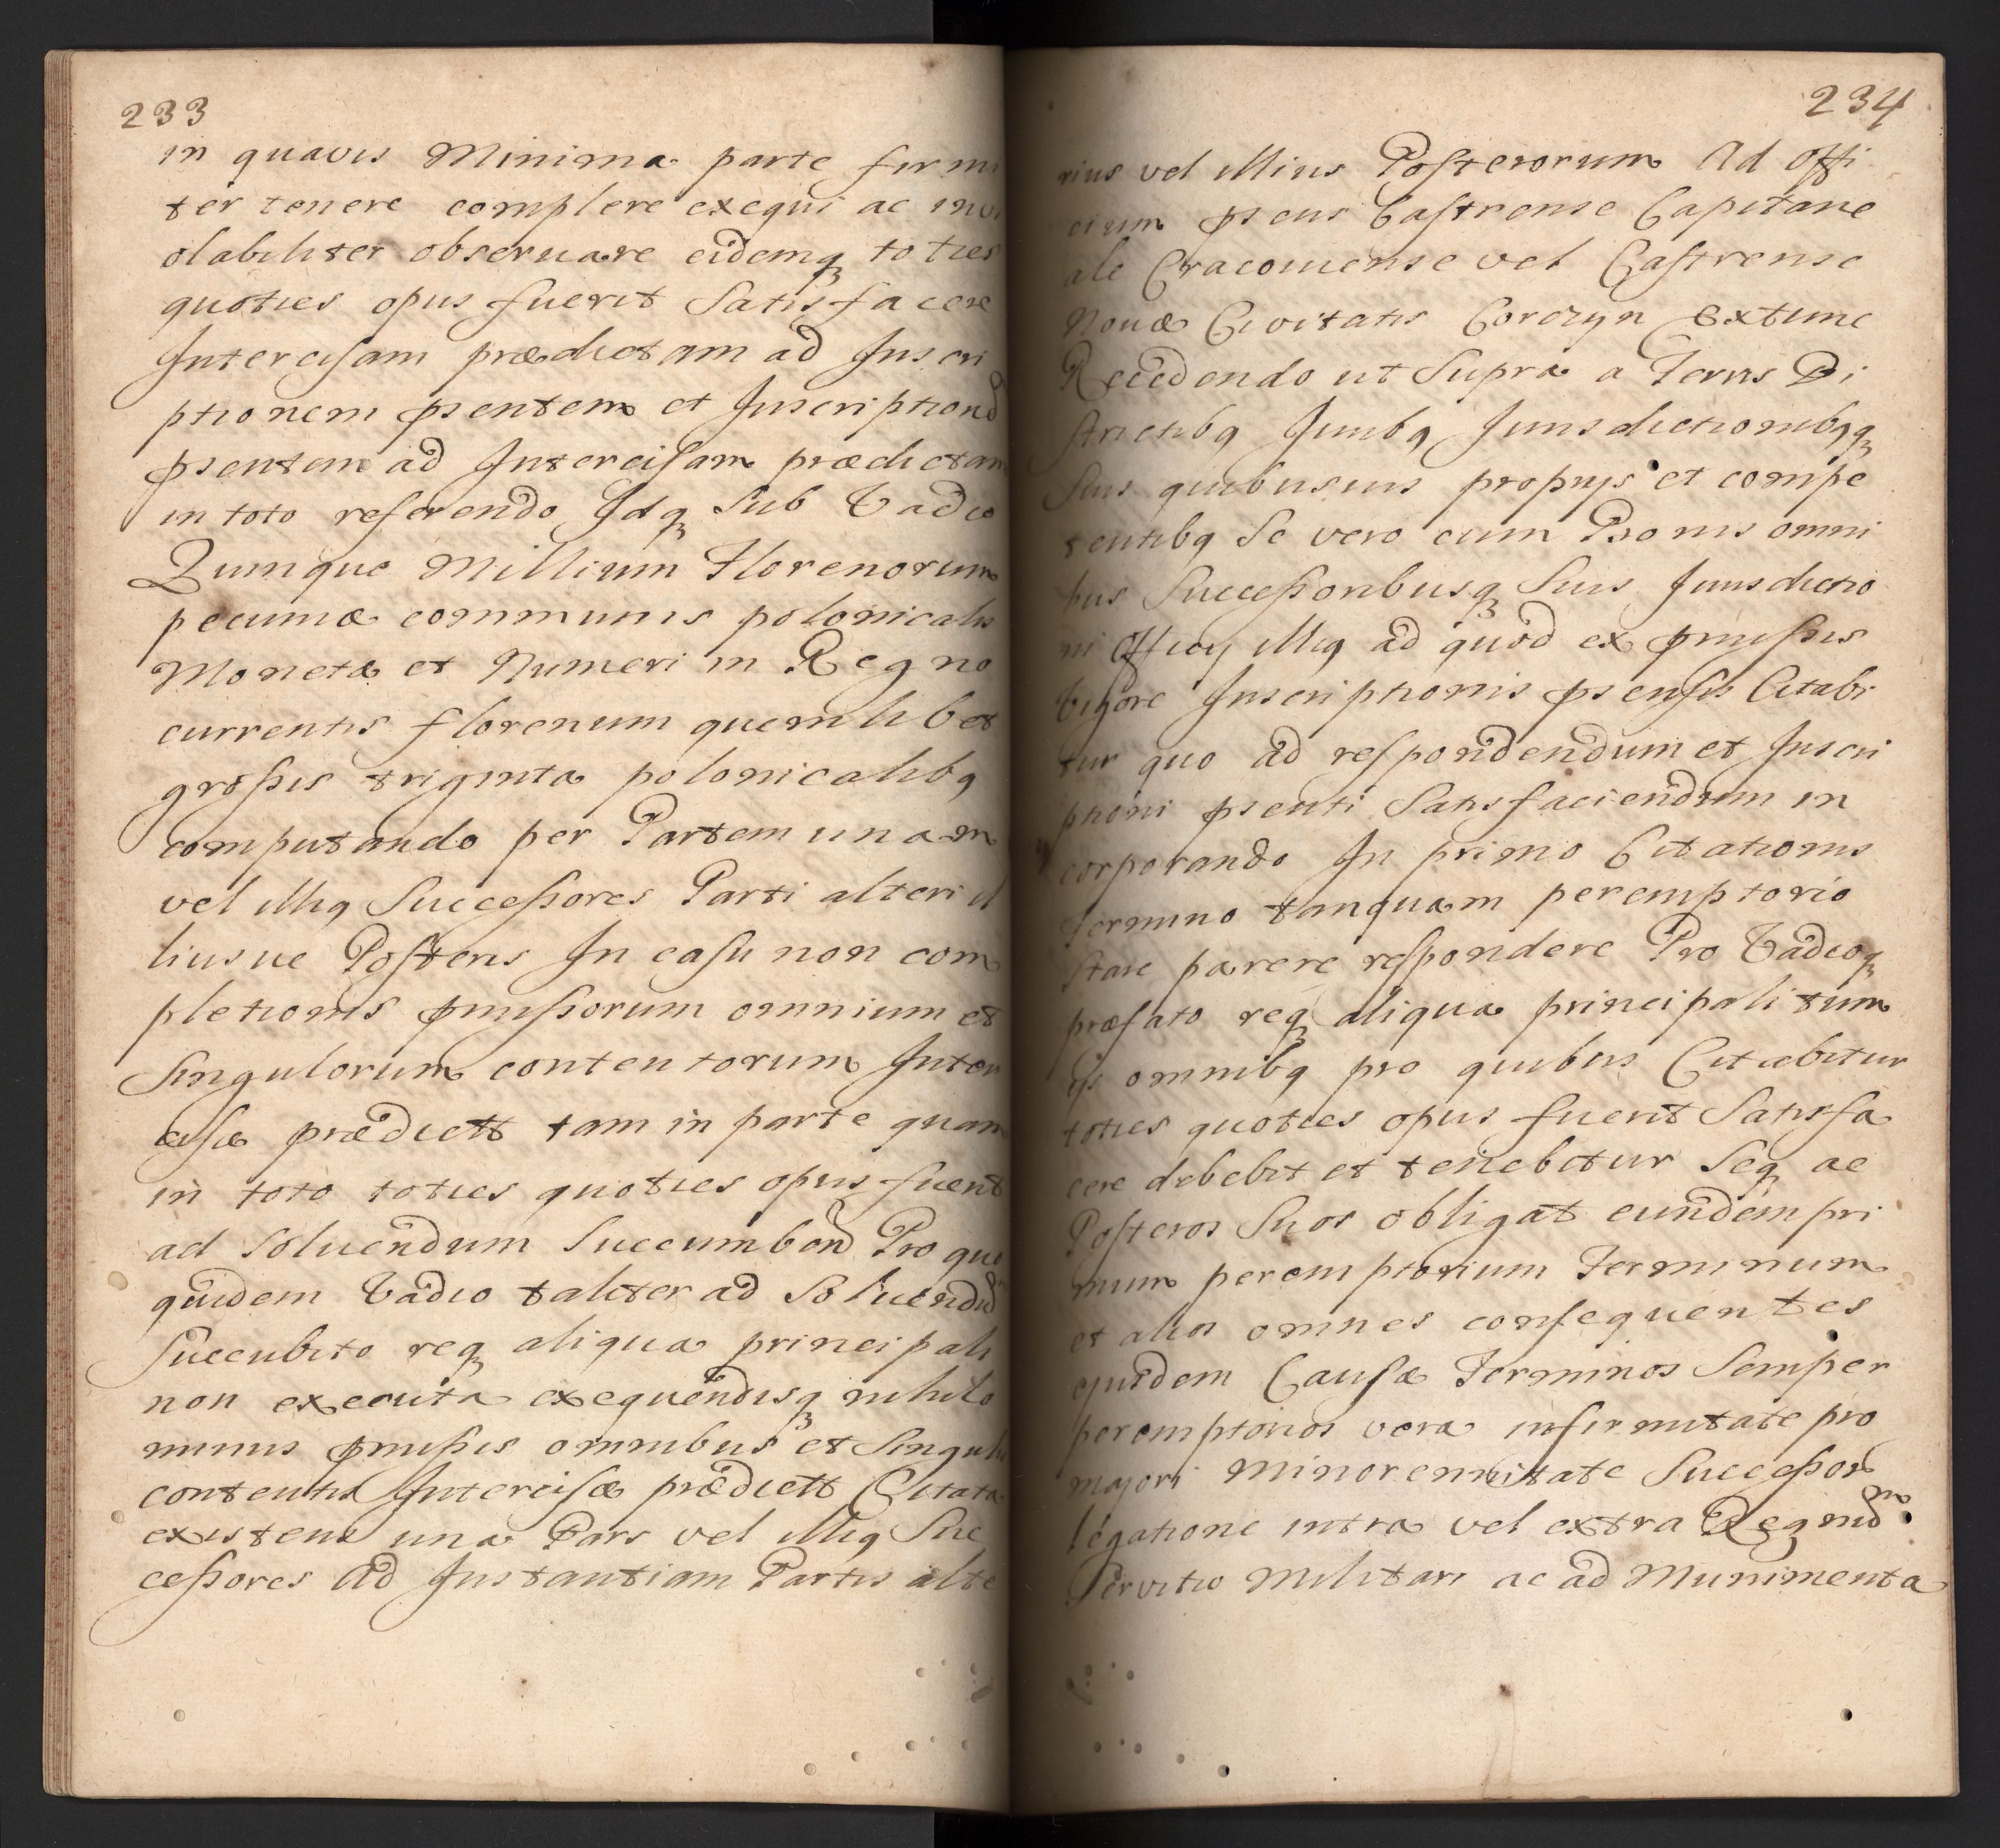 233
in quavis Minima parte firmi
ter tenere complere exequi ac invi
olabiliter observare eidemq toties
quoties opus fuerit Satisfacere
Intercisam prædictam ad Inscri
ptionem psentem et Inscriptionẽ
psentem ad Intercisam prædictam
in toto referendo Idq Sub Vadio
Quinque Millium Florenorum
pecuniæ communis polonicalis
Monetæ et Numeri in Regno
currentis florenum quemlibet
großis triginta polonicalibq
computando per Partem unam
vel illiq Succeßores Parti alteri il
liusve Posteris In casu non com
pletionis pmißorum omnium et
Singulorum contentorum Inter
cisæ prædictt tam in parte quam
in toto toties quoties opus fuerit
ad Soluendum Succumbeñ Pro quo
quidem Vadio taliter ad Soluendũ
Succubito req aliqua principali
non executa exequendisq nihilo
minus pmißis omnibus et Singulis
contentis Intercisæ prædictt Citata
existens una Pars vel illiq Suc
ceßores Ad Instantiam Partis alte
234
rius vel illius Posterorum Ad Offi
cium psens Castrense Capitane
ale Cracoviense vel Castrense
Novæ Civitatis Corczyn Extunc
Recedendo ut Supra a Terris Di
strictibq Juribq Jurisdictionibqq
Suis quibusuis proprijs et compe
tentibq Se vero cum Bonis omni
bus Succeßoribusq Suis Jurisdictio
ni Officij illiq ad quod ex pmißis
Vigore Inscriptionis psentis Citabi
tur quo ad respondendum et Inscri
ptioni psenti Satisfaciendum in
corporando In primo Citationis
Termino tanquam peremptorio
Stare parere respondere Pro Vadioq
præfato req aliqua principali tum
ijs omnibq pro quibus Citabitur
toties quoties opus fuerit Satisfa
cere debebit et tenebitur Seq ac
Posteros Suos obligat eundem pri
mum peremptorium Terminum
et alios omnes consequentes
ejusdem Causæ Terminos Semper
peremptorios vera infirmitate pro
majori Minorennitate Succeßor
legatione intra vel extra Regnũ
Servitio Militari ac ad Munimenta